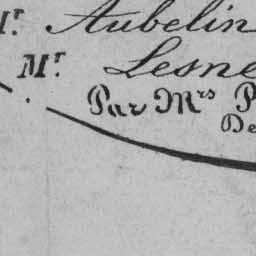 Mr. Aubelin
Mr. Lesne
Par Mrs P
De